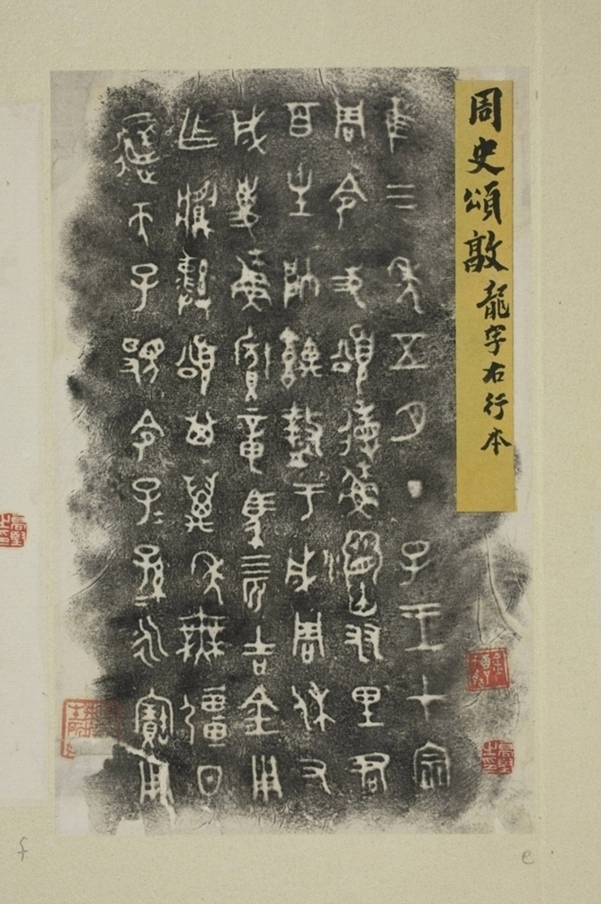 周史頌敦 龍字右行本
隹三年五月丁巳王才宗
周令史頌省穌友里君
百生帥盩于成周休又
成事穌賓章馬四匹吉金用
乍彝頌其萬年無疆日
天子令子=孫=永寶用
f
e